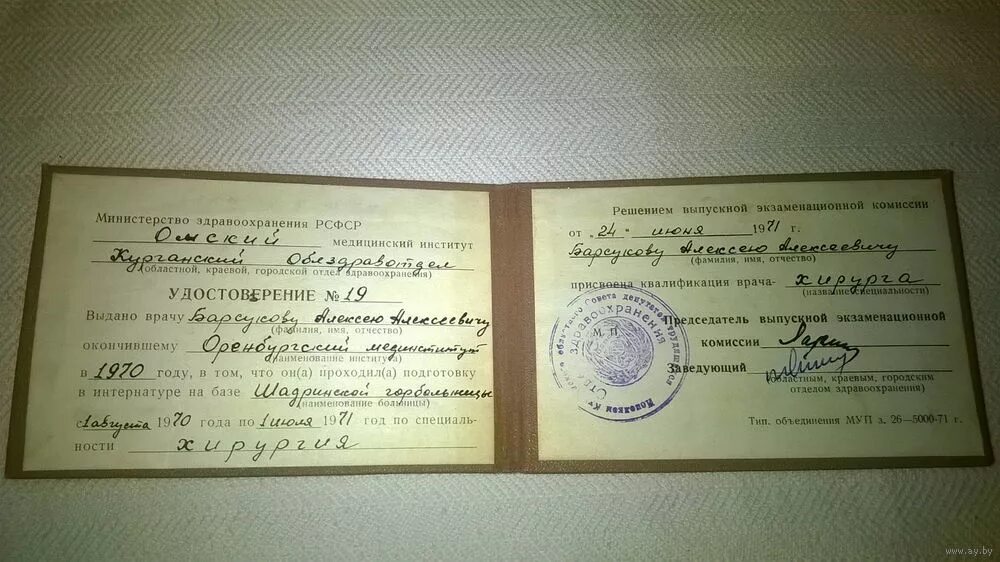 Министерство здравоохранения РСФСР
Омский медицинский институт
Курганский Облздравотдел
(областной, краевой, городской отдел здравоохранения)
УДОСТОВЕРЕНИЕ № 19
Выдано врачу Барсукову Алексею Алексеевичу
(фамилия, имя, отчество)
окончившему Оренбургский мединститут
(наименование института)
в 1970 году, в том, что он(а) проходил(а) подготовку
в интернатуре на базе Шадринской горбольницы
(наименование больницы)
с 1 августа 1970 года по 1 июля 1971 год по специаль-
ности хирургия
Решением выпускной экзаменационной комиссии
от „24" июня 1971 г.
Барсукову Алексею Алексаевичу
(фамилия, имя, отчество)
присвоена квалификация врача- хирурга
(название специальности)
Председатель выпускной экзаменационной
комиссии
М. П.
Заведующий
(областным, краевым, городским
отделом здравоохранения)
областного Совета депутатов трудящихся
здравоохранения
Тип. объединения МУП з. 26—5000-71 г.
www.ay.by